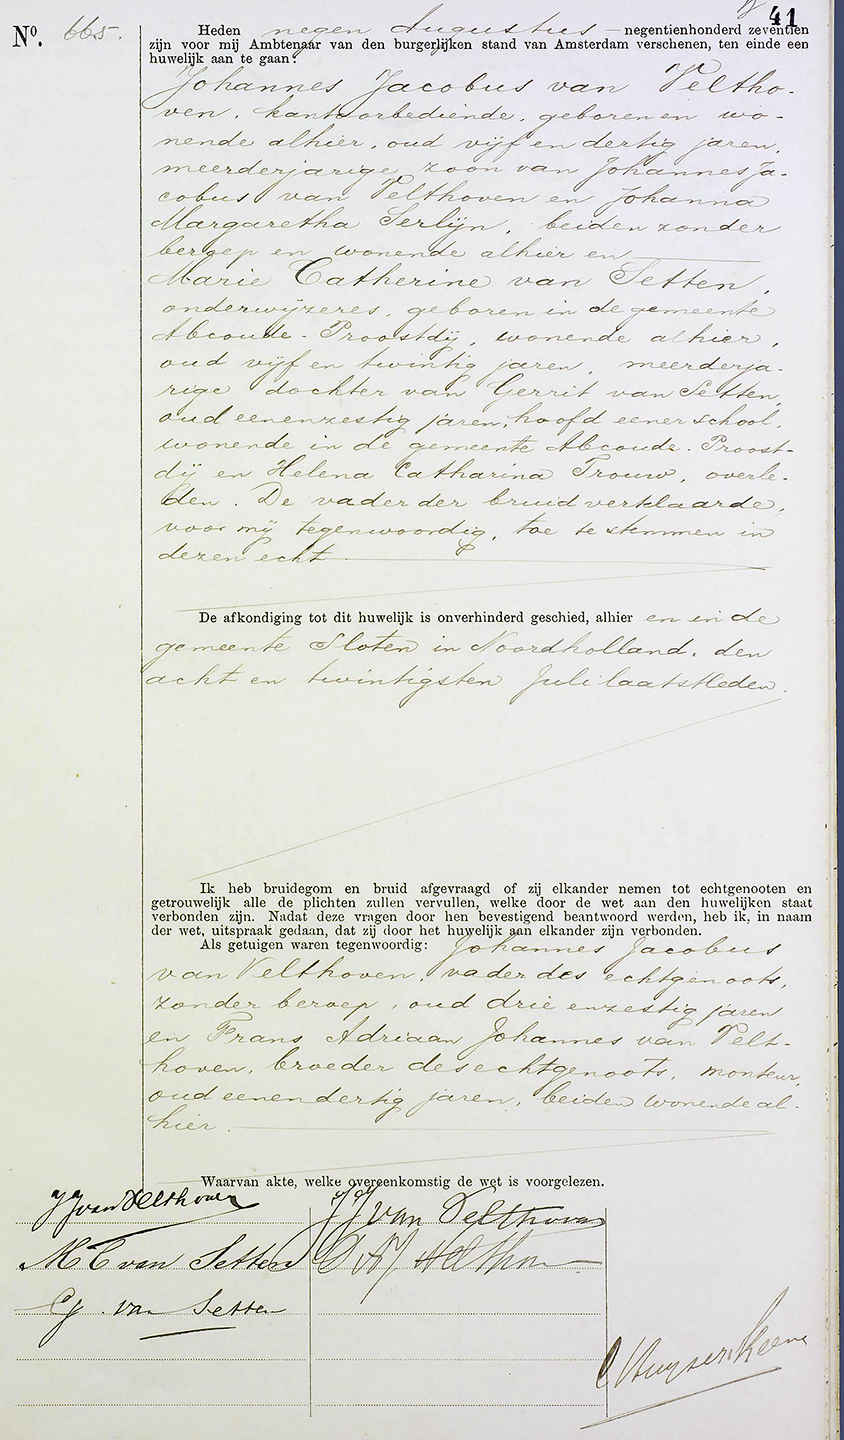 41
No. 665.
Heden negen Augustus negentienhonderd zeventien
zijn voor mij Ambtenaar van den burgerlijken stand van Amsterdam verschenen, ten einde een
huwelijk aan te gaan:
Johannes Jacobus van Veltho-
ven, kantoorbediende, geboren en wo-
nende alhier, oud vijf en dertig jaren,
meerderjarige zoon van Johannes Ja-
cobus van Velthoven en Johanna
Margaretha Serlijn, beiden zonder
beroep en wonende alhier en
Marie Catherine van Setten,
onderwijzeres, geboren in de gemeente
Abcoude-Proostdij, wonende alhier,
oud vijf en twintig jaren, meerderja-
rige dochter van Gerrit van Setten,
oud eenenzestig jaren, hoofd eener school,
wonende in de gemeente Abcoude-Proost-
dij en Helena Catharina Trouw, overle-
den. De vader der bruid verklaarde,
voor mij tegenwoordig, toe te stemmen in
dezen echt.
De afkondiging tot dit huwelijk is onverhinderd geschied, alhier en in de
gemeente Sloten in Noordholland, den
acht en twintigsten Juli laatstleden.
Ik heb bruidegom en bruid afgevraagd of zij elkander nemen tot echtgenooten en
getrouwelijk alle de plichten zullen vervullen, welke door de wet aan den huwelijken staat
verbonden zijn. Nadat deze vragen door hen bevestigend beantwoord werden, heb ik, in naam
der wet, uitspraak gedaan, dat zij door het huwelijk aan elkander zijn verbonden.
Als getuigen waren tegenwoordig: Johannes Jacobus
van Velthoven, vader des echtgenoots,
zonder beroep, oud drie enzestig jaren
en Frans Adriaan Johannes van Velt-
hoven, broeder des echtgenoots, monteur,
oud eenendertig jaren, beiden wonende al-
hier.
Waarvan akte, welke overeenkomstig de wet is voorgelezen.
JJ van Velthoven
JJ van Velthoven
M C van Setten
G. van Setten